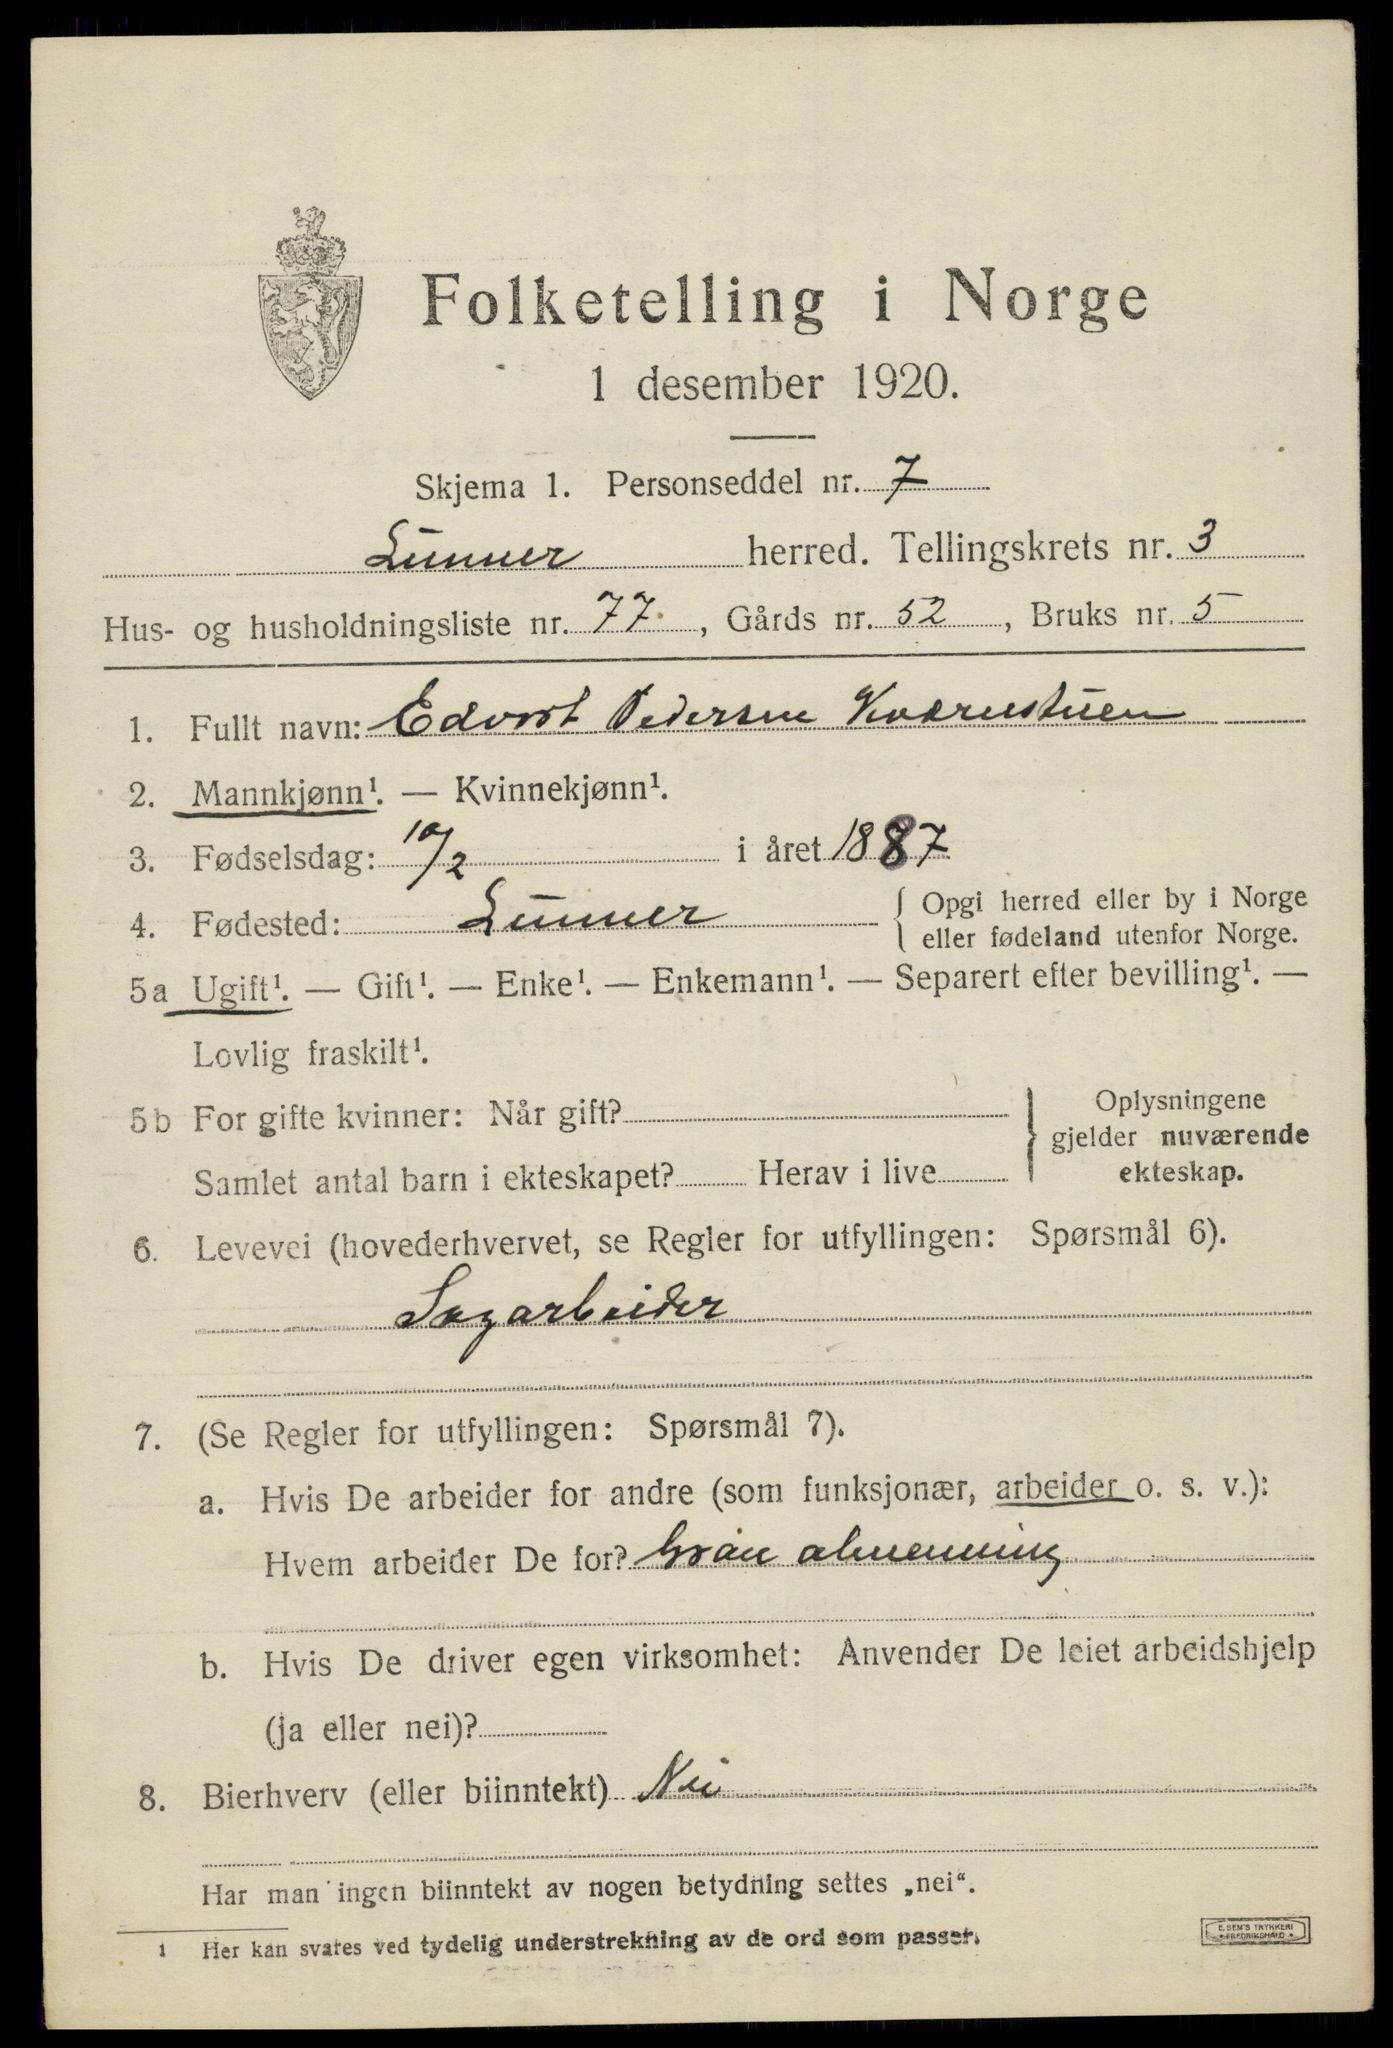 Folketelling i Norge
1 desember 1920.
Skjema 1. Personseddel nr. 7
Lunner herred. Tellingskrets nr. 3
Hus- og husholdningsliste nr. 77, Gårds nr. 52, Bruks nr. 5
1. Fullt navn: Edvart Pedersen Kværnstuen
2. Mannkjønn¹. — Kvinnekjønn¹.
3. Fødselsdag: 10/2 i året 1887
4. Fødested: Lunner { Opgi herred eller by i Norge
eller fødeland utenfor Norge.
5a Ugift¹. — Gift¹. — Enke¹. — Enkemann¹. — Separert efter bevilling¹. —
Lovlig fraskilt¹.
5b For gifte kvinner: Når gift?
Samlet antal barn i ekteskapet? Herav i live
} Oplysningene
gjelder nuværende
ekteskap.
6. Levevei (hovederhvervet, se Regler for utfyllingen: Spørsmål 6).
Sagarbeider
7. (Se Regler for utfyllingen: Spørsmål 7).
a. Hvis De arbeider for andre (som funksjonær, arbeider o. s. v.):
Hvem arbeider De for? Gran almenning
b. Hvis De driver egen virksomhet: Anvender De leiet arbeidshjelp
(ja eller nei)?
8. Bierhverv (eller biinntekt) Nei
Har man ingen biinntekt av nogen betydning settes „nei“.
1 Her kan svares ved tydelig understrekning av de ord som passer.
E. SEM'S TRYKKERI
• FREDRIKSHALD •